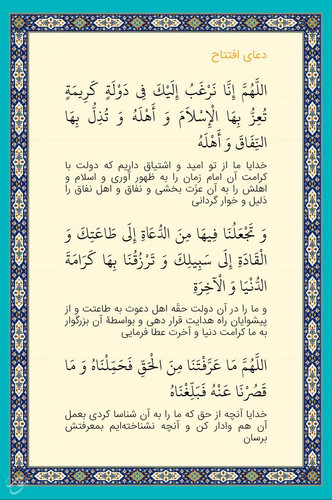 دعای افتتاح
اللَّهُمَّ إِنَّا نَرْغَبُ إِلَيْكَ فِي دَوْلَةٍ كَرِيمَةٍ
تُعِزُّ بِهَا الْإِسْلَامَ وَ أَهْلَهُ وَ تُذِلُّ بِهَا
النِّفَاقَ وَ أَهْلَهُ
خدایا ما از تو امید و اشتیاق داریم که دولت با
کرامت آن امام زمان را به ظهور آوری و اسلام و
اهلش را به آن عزت بخشی و نفاق و اهل نفاق را
ذلیل و خوار گردانی
وَ تَجْعَلُنَا فِيهَا مِنَ الدُّعَاةِ إِلَى طَاعَتِكَ وَ
الْقَادَةِ إِلَى سَبِيلِكَ وَ تَرْزُقُنَا بِهَا كَرَامَةَ
الدُّنْيَا وَ الْآخِرَةِ
و ما را در آن دولت حقّه اهل دعوت به طاعتت و از
پیشوایان راه هدایت قرار دهی و بواسطهٔ آن بزرگوار
به ما کرامت دنیا و آخرت عطا فرمایی
اللَّهُمَّ مَا عَرَّفْتَنَا مِنَ الْحَقِّ فَحَمِّلْنَاهُ وَ مَا
قَصُرْنَا عَنْهُ فَبَلِّغْنَاهُ
خدایا آنچه از حق که ما را به آن شناسا کردی بعمل
آن هم وادار کن و آنچه نشناخته‌ایم بمعرفتش
برسان